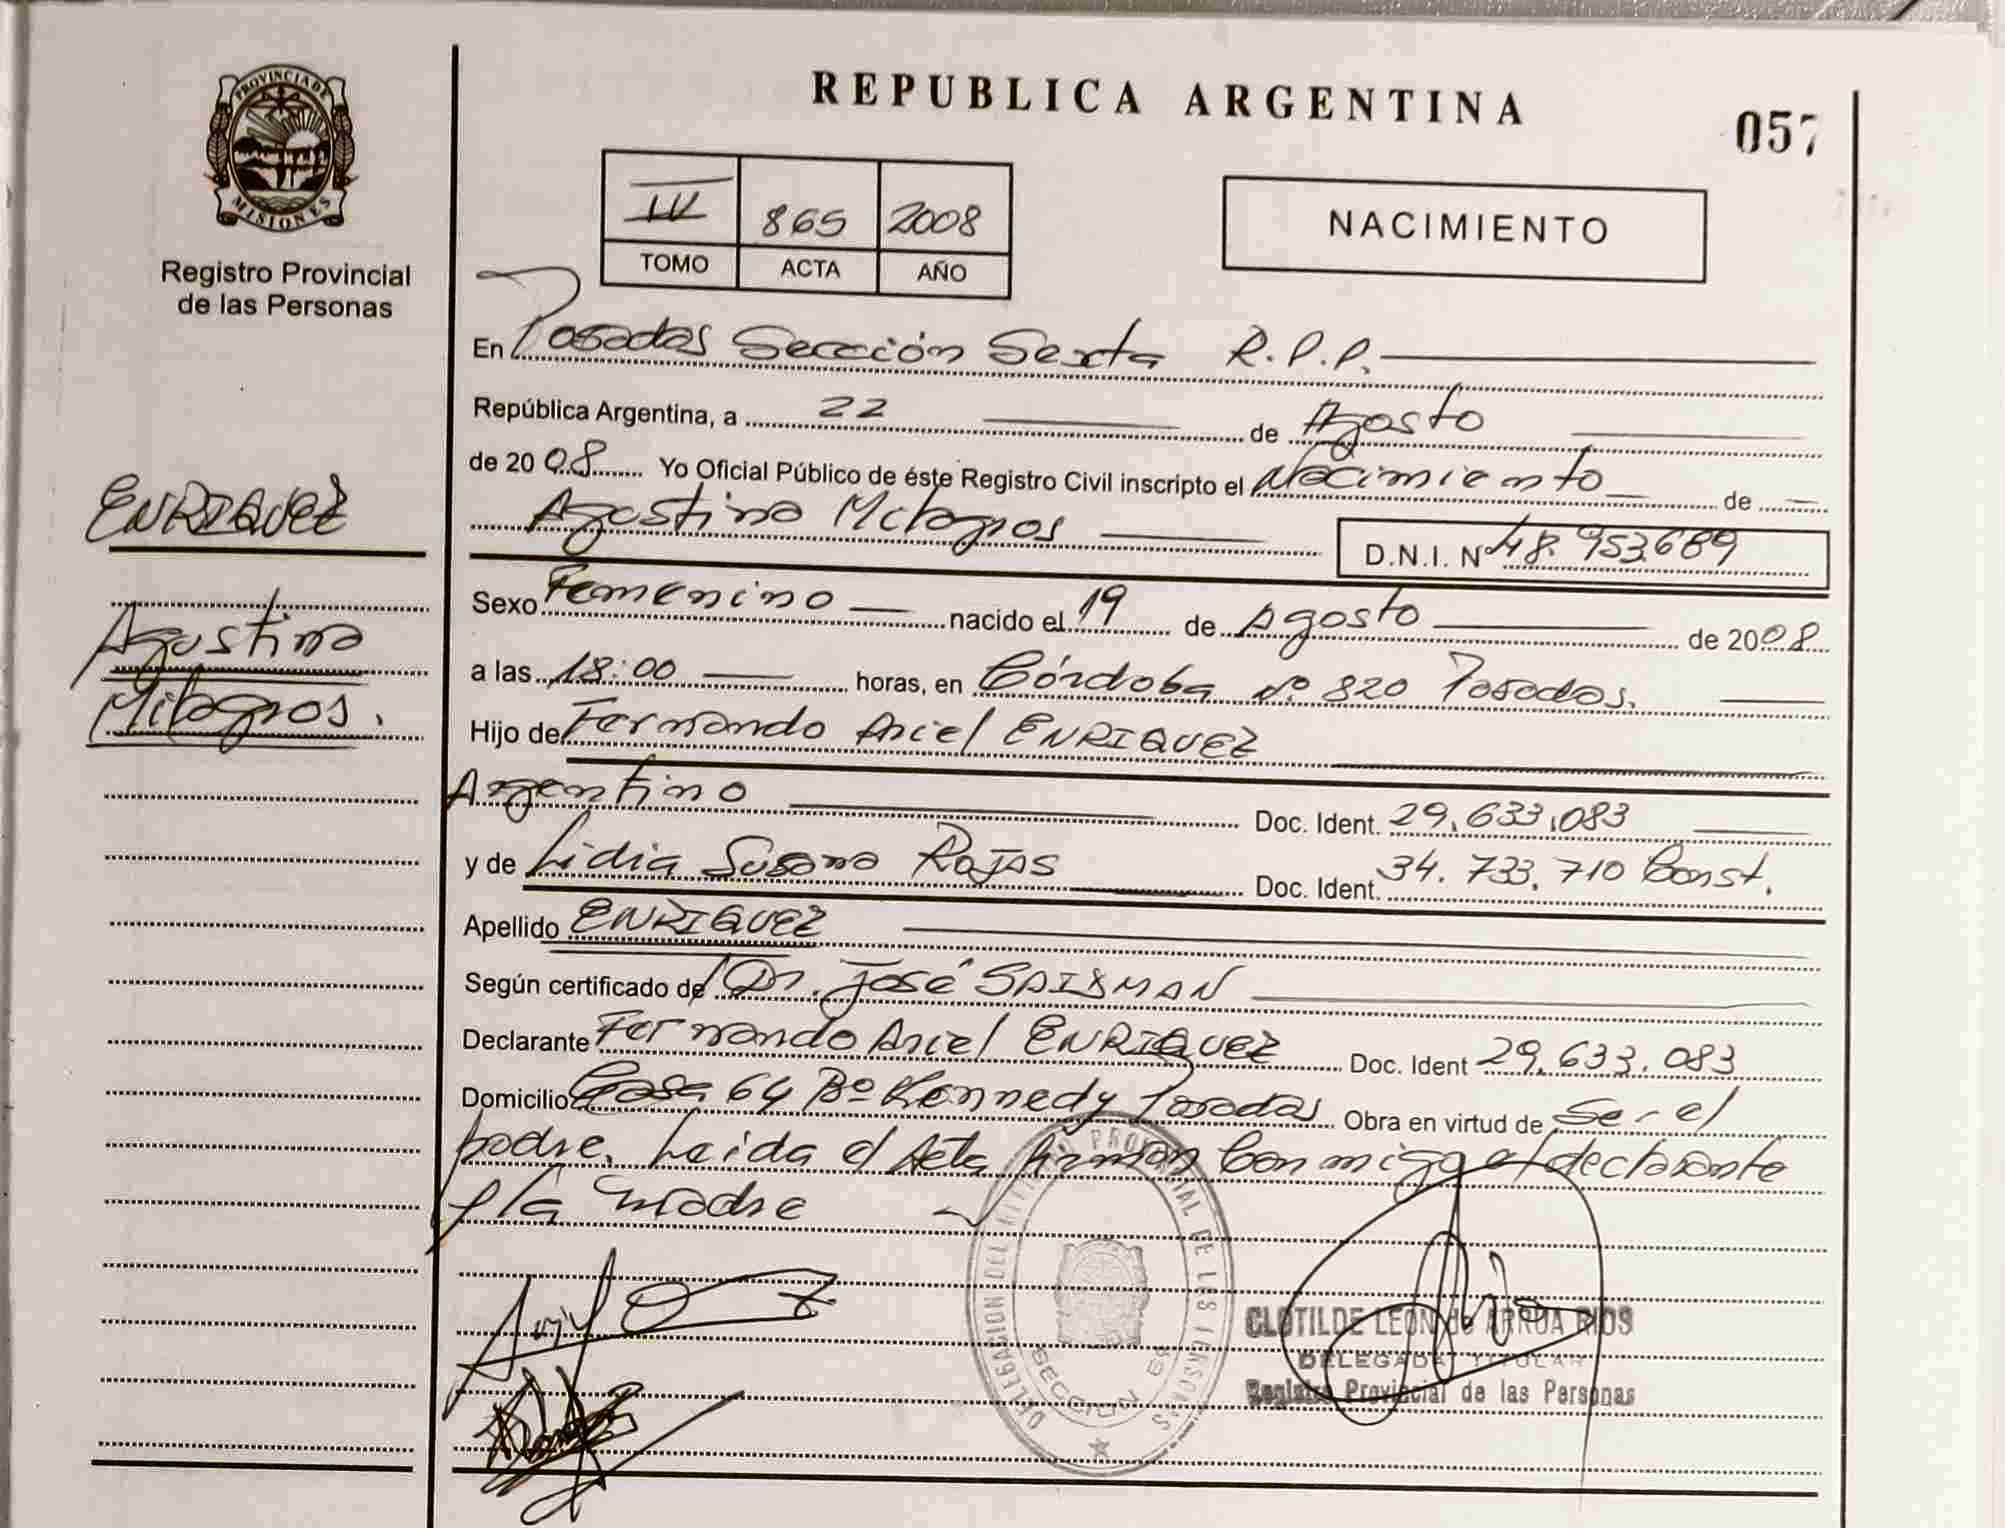 PROVINCIA DE
MISIONES
Registro Provincial
de las Personas
ENRIQUEZ
Agustina
Milagros.
REPUBLICA ARGENTINA
057
IV 865 2008
TOMO ACTA AÑO
NACIMIENTO
En Posadas Sección Sexta R.P.P.
República Argentina, a 22 de Agosto
de 2008 Yo Oficial Público de éste Registro Civil inscripto el Nacimiento de
Agustina Milagros D.N.I. Nº 48.953.689
Sexo Femenino nacido el 19 de Agosto de 2008
a las 18:00 horas, en Córdoba Nº 820 Posadas.
Hijo de Fernando Ariel ENRIQUEZ
Argentino Doc. Ident. 29.633.083
y de Lidia Susana ROJAS Doc. Ident. 34.733.710 Const.
Apellido ENRIQUEZ
Según certificado de Dr. José
Declarante Fernando Ariel ENRIQUEZ Doc. Ident 29.633.083
Domicilio Casa 64 Bº Kennedy Posadas Obra en virtud de Ser el
padre. Leida el Acta firman Conmigo el declarante
y la madre
DELEGACION DEL REGISTRO PROVINCIAL DE LAS PERSONAS
SECCION 6ª
CLOTILDE LEON de ARRUA RIOS
DELEGADA TITULAR
Registro Provincial de las Personas